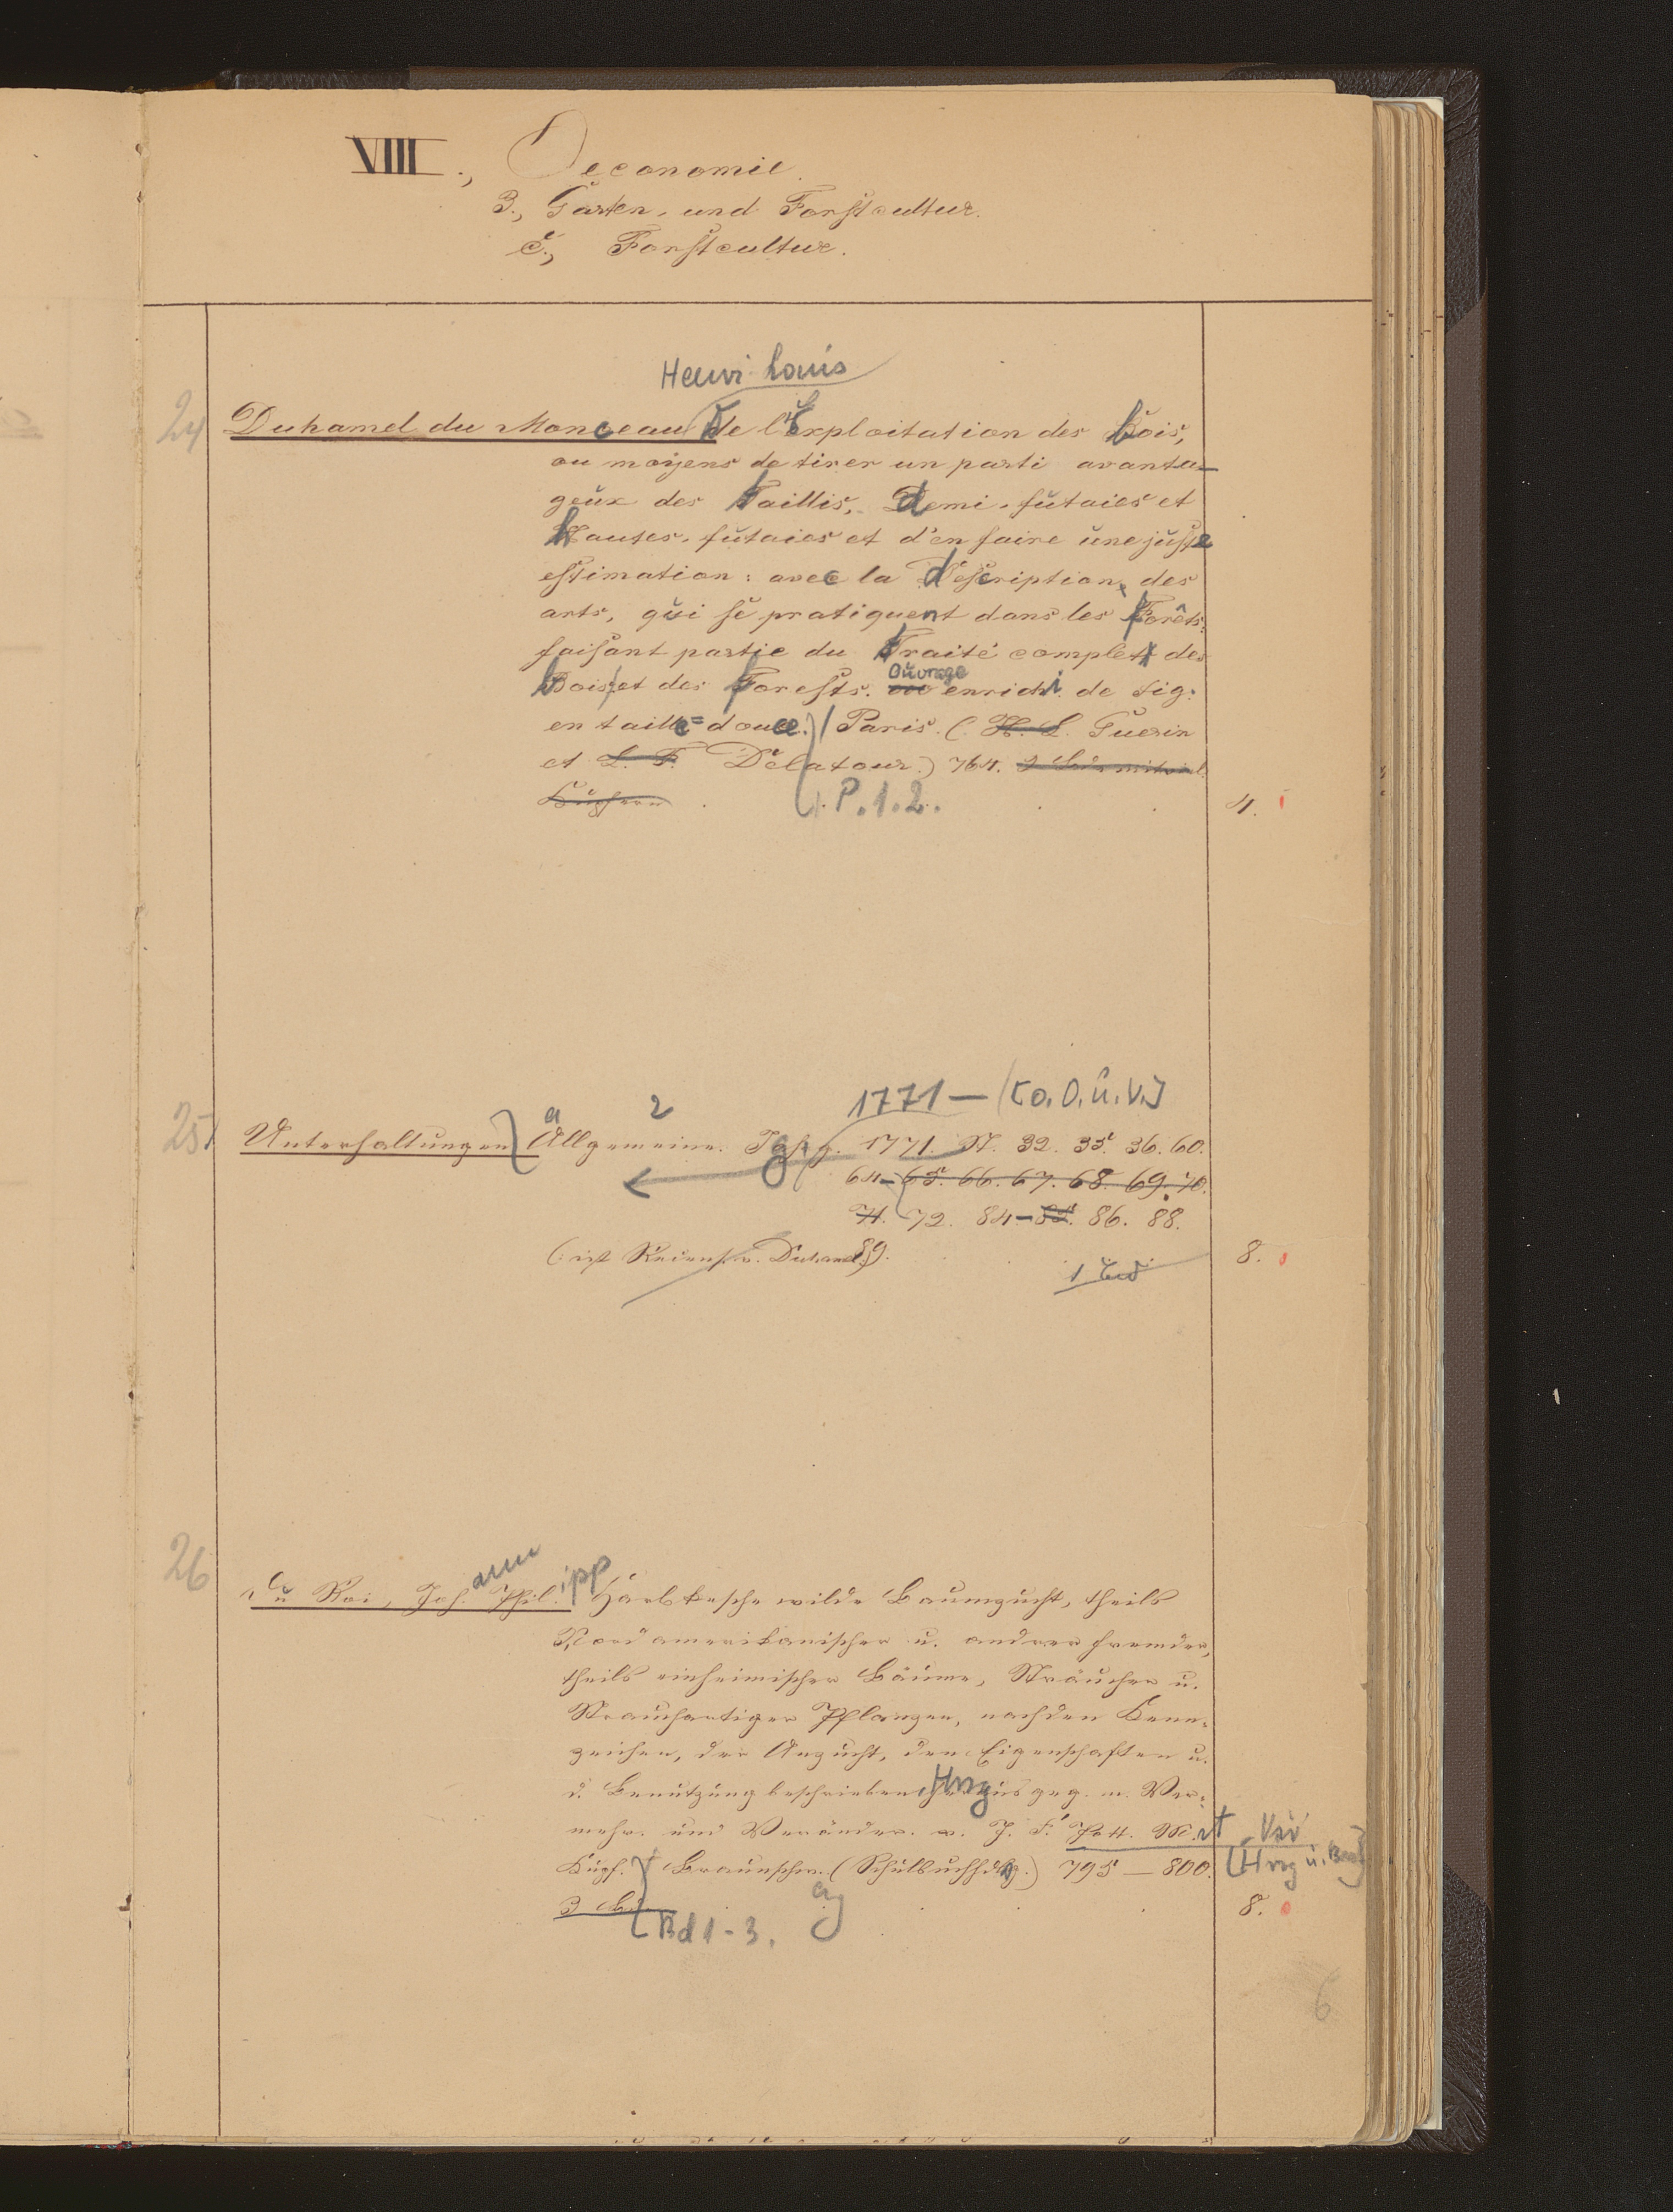 VIII., Oeconomie.
3., Garten- und Forstcultur.
c., Forstcultur.
Henri Louis
24
Duhamel du Monceau De l'Exploitation des Bois,
ou moyens de tirer un parti avanta-
geux des Taillis, Demi-futaies et
Hautes-futaies et d'en faire une juste
estimation: avec la Description des
arts, qui se pratiquent dans les Forêts:
faisant partie du Traité complet des
Bois et des Forests. Ouvrage enrichi de fig.
en taille=douce. Paris. (H. L. Guerin
et L. F. Delatour.) 764.
Kupfern. P. 1. 2. 4.
1771 — [o. O. u. V.]
25
a 2
Unterhaltungen Allgemeine. 1771. St. 32. 35. 36. 60.
64-65. 66. 67. 68. 69. 70.
71. 72. 84-85. 86. 88.
(: ist Recens. v. Duhamel.) 89. 8.
26
ann ipp
du Roi, Joh. Phil. Harbkesche wilde Baumzucht, theils
Nordamerikanischer u. andrer fremder,
theils einheimischer Bäume, Sträucher u.
Strauchartiger Pflanzen, nach den Kenn-
zeichen, der Anzucht, den Eigenschaften u.
d. Benutzung beschrieben Hrsg. ausgeg. m. Ver-
mehr. und Veränder. v. J. F. Pott. M.
Kupf. Braunschw. (Schulbuchhdlg.) 795 — 800.
[Hrsg u. Bearb]
3 Bd. 8.
Bd 1-3.
6